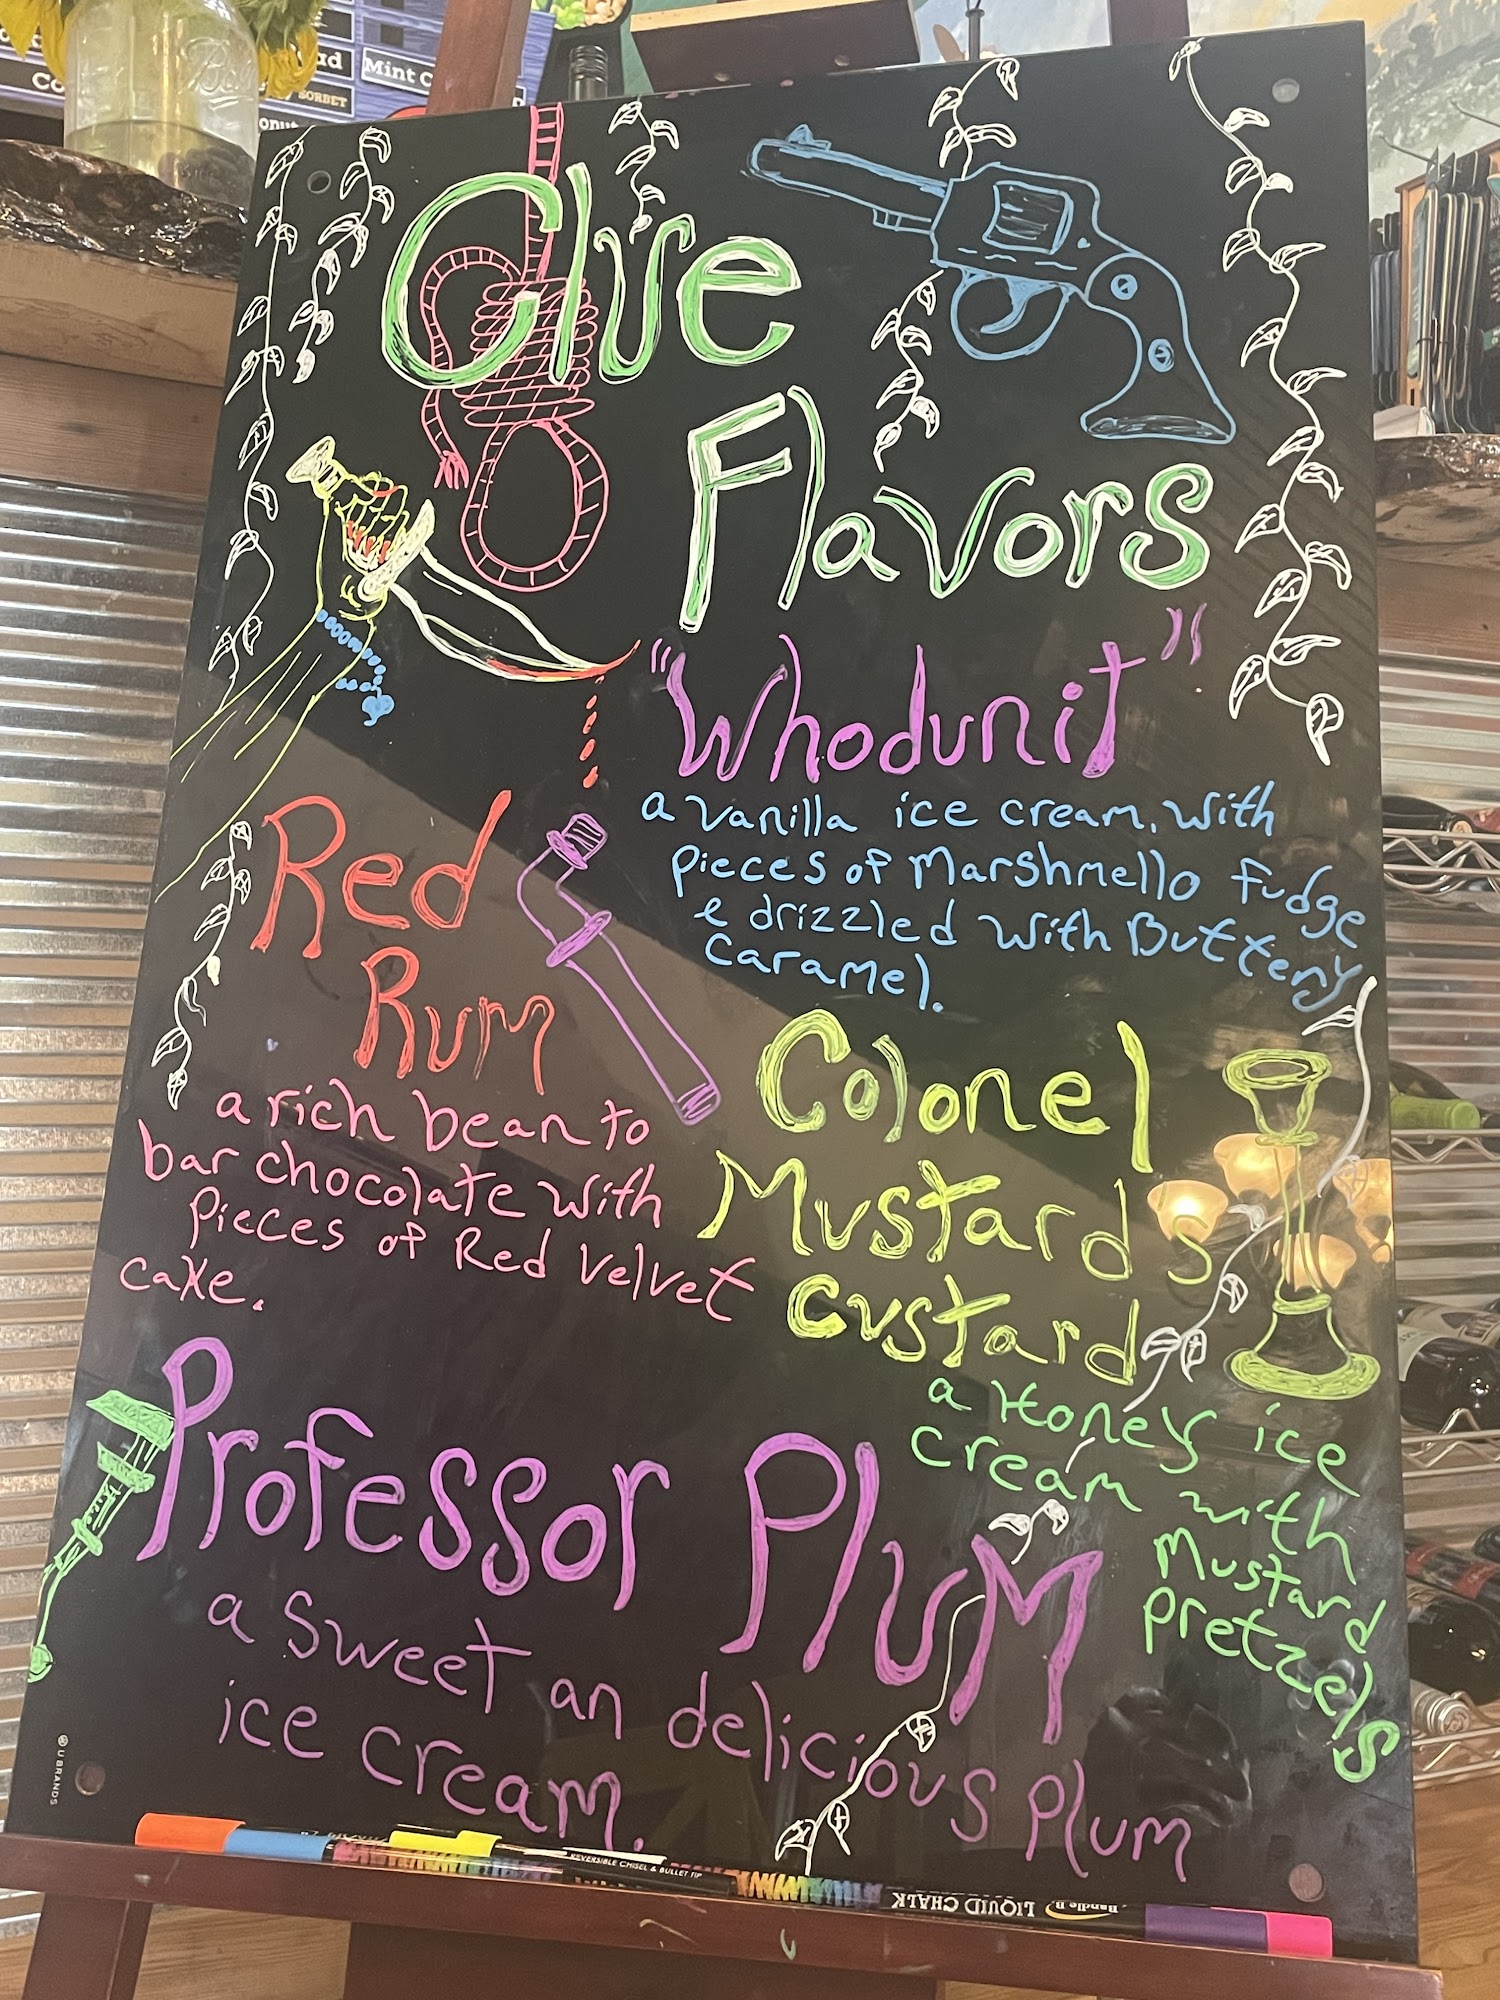 Mint C
SORBET
Ball
Clue
Flavors
"Whodunit"
a vanilla ice cream, with
pieces of Marshmello fudge
& drizzled with Buttery
caramel.
Red
Rum
a rich bean to
bar chocolate with
pieces of Red Velvet
cake.
Colonel
Mustards
Custard
a Honey ice
cream with
Mustard
pretzels
Professor Plum
a sweet an delicious plum
ice cream.
U BRANDS
REVERSIBLE CHISEL & BULLET TIP
LIQUID CHALK